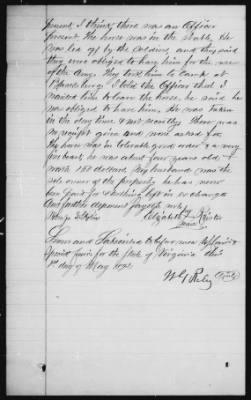 present I think, there was an Officer
present. The horse was in the Stable, He
was led off by the soldiers, and they said
they were obliged to have him for the use
of the Army. They took him to Camp at
I told the Officer that I
wanted him to leave the horse, he said he
was obliged to have him, He was taken
in the day time & not secretly. There was
no receipt given and none asked for
The horse was in tolerable good order & a very
fine beast, he was about four years old &
worth 150 dollars. My husband was the
sole owner of the property he has never
been paid for & nothing left in exchange
And further deponent sayeth not
Elizabeth her mark
Sworn and Subscribed to before me a
Special Comr for the State of Virginia this
1st day of May 1872
W G Riley